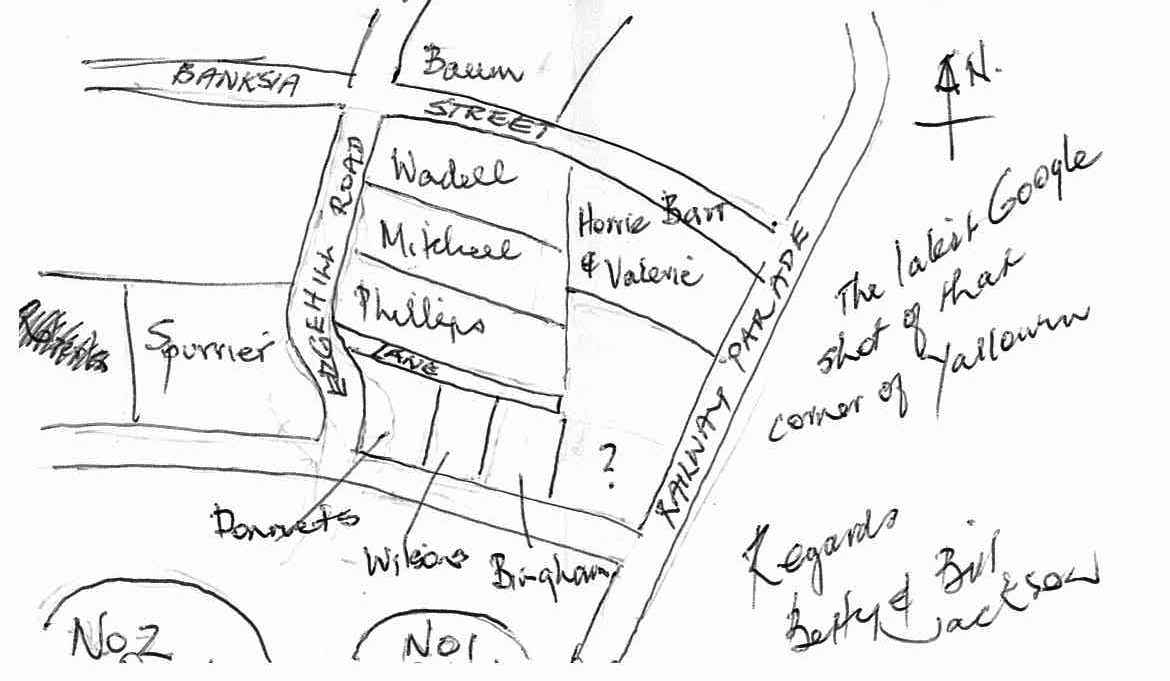 Baum
BANKSIA
STREET
N.
EDGEHILL ROAD
Wadell
Mitchell
Phillips
Horrie Barr
& Valerie
RAILWAY PARADE
The latest Google
shot of that
corner of Yallourn
Spurrier
LANE
?
Donnets
Wilsons
Bingham
Regards
Betty & Bill
Jackson
No2
No1